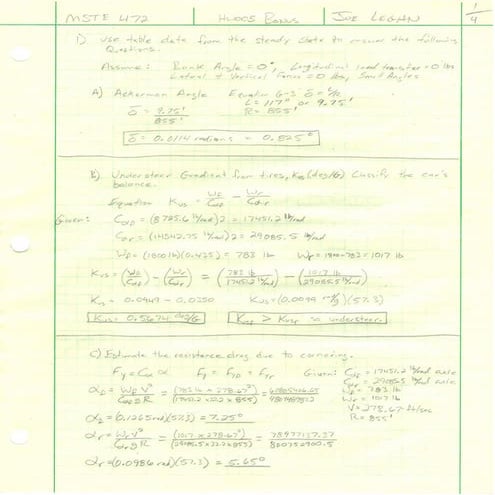 MSTE 472 | HW005 BONUS | JOE LEGAN | 1/4
1) Use table data from the steady state to answer the following
Questions.
Assume: Bank Angle = 0°, Longitudinal load transfer = 0 lbs
Lateral + Vertical Forces = 0 lbs, Small Angles
A) Ackerman Angle Equation 6-3 δ = L/R
L = 117" or 9.75'
R = 855'
δ = 9.75' / 855'
δ = 0.0114 radians = 0.825°
B) Understeer Gradient from tires, Kus (deg/G) Classify the car's
balance.
Equation Kus = Wf/Cαf - Wr/Cαr
Given: Cαf = (8725.6 lb/rad)2 = 17451.2 lb/rad
Cαr = (14542.75 lb/rad)2 = 29085.5 lb/rad
Wf = (1800 lb)(0.435) = 783 lb Wr = 1800-783 = 1017 lb
Kus = (Wf/Cαf) - (Wr/Cαr) = (783 lb / 17451.2 lb/rad) - (1017 lb / 29085.5 lb/rad)
Kus = 0.0449 - 0.0350 Kus = (0.0099 )(57.3)
Kus = 0.5674 deg/G so understeer.
C) Estimate the resistance drag due to cornering.
Fy = Cα α Given: Cαf = 17451.2 lb/rad axle
Cαr = 29085.5 lb/rad axle
Wf = 783 lb
Wr = 1017 lb
V = 278.67 ft/sec
R = 855'
αf = Wf V² / Cαf g R = (783 lb x 278.67²) / (17451.2 x 32.2 x 855)
αf = (0.1265 rad)(57.3) = 7.25°
αr = Wr V² / Cαr g R = (1017 x 278.67²) / (29085.5 x 32.2 x 855)
αr = (0.0986 rad)(57.3) = 5.65°